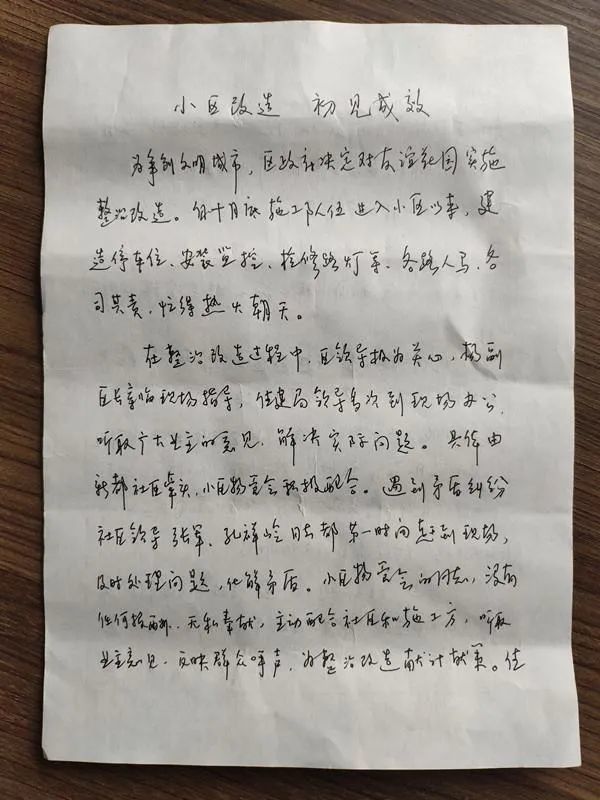 小区改造 初见成效
为争创文明城市，区政府决定对友谊花园实施
整治改造。自十月底施工队伍进入小区以来，建
造停车位、安装监控、检修路灯等，各路人马，各
司其责，忙得热火朝天。
在整治改造过程中，区领导极为关心，杨副
区长亲临现场指导，住建局领导多次到现场办公，
听取广大业主的意见，解决实际问题。具体由
新都社区牵头，小区物管会积极配合。遇到矛盾纠纷
社区领导张军、孔祥 同志都第一时间赶到现场，
及时处理问题，化解矛盾。小区物管会的同志，没有
任何报酬，无私奉献，主动配合社区和施工方，听取
业主意见，反映群众呼声，为整治改造献计献策。住